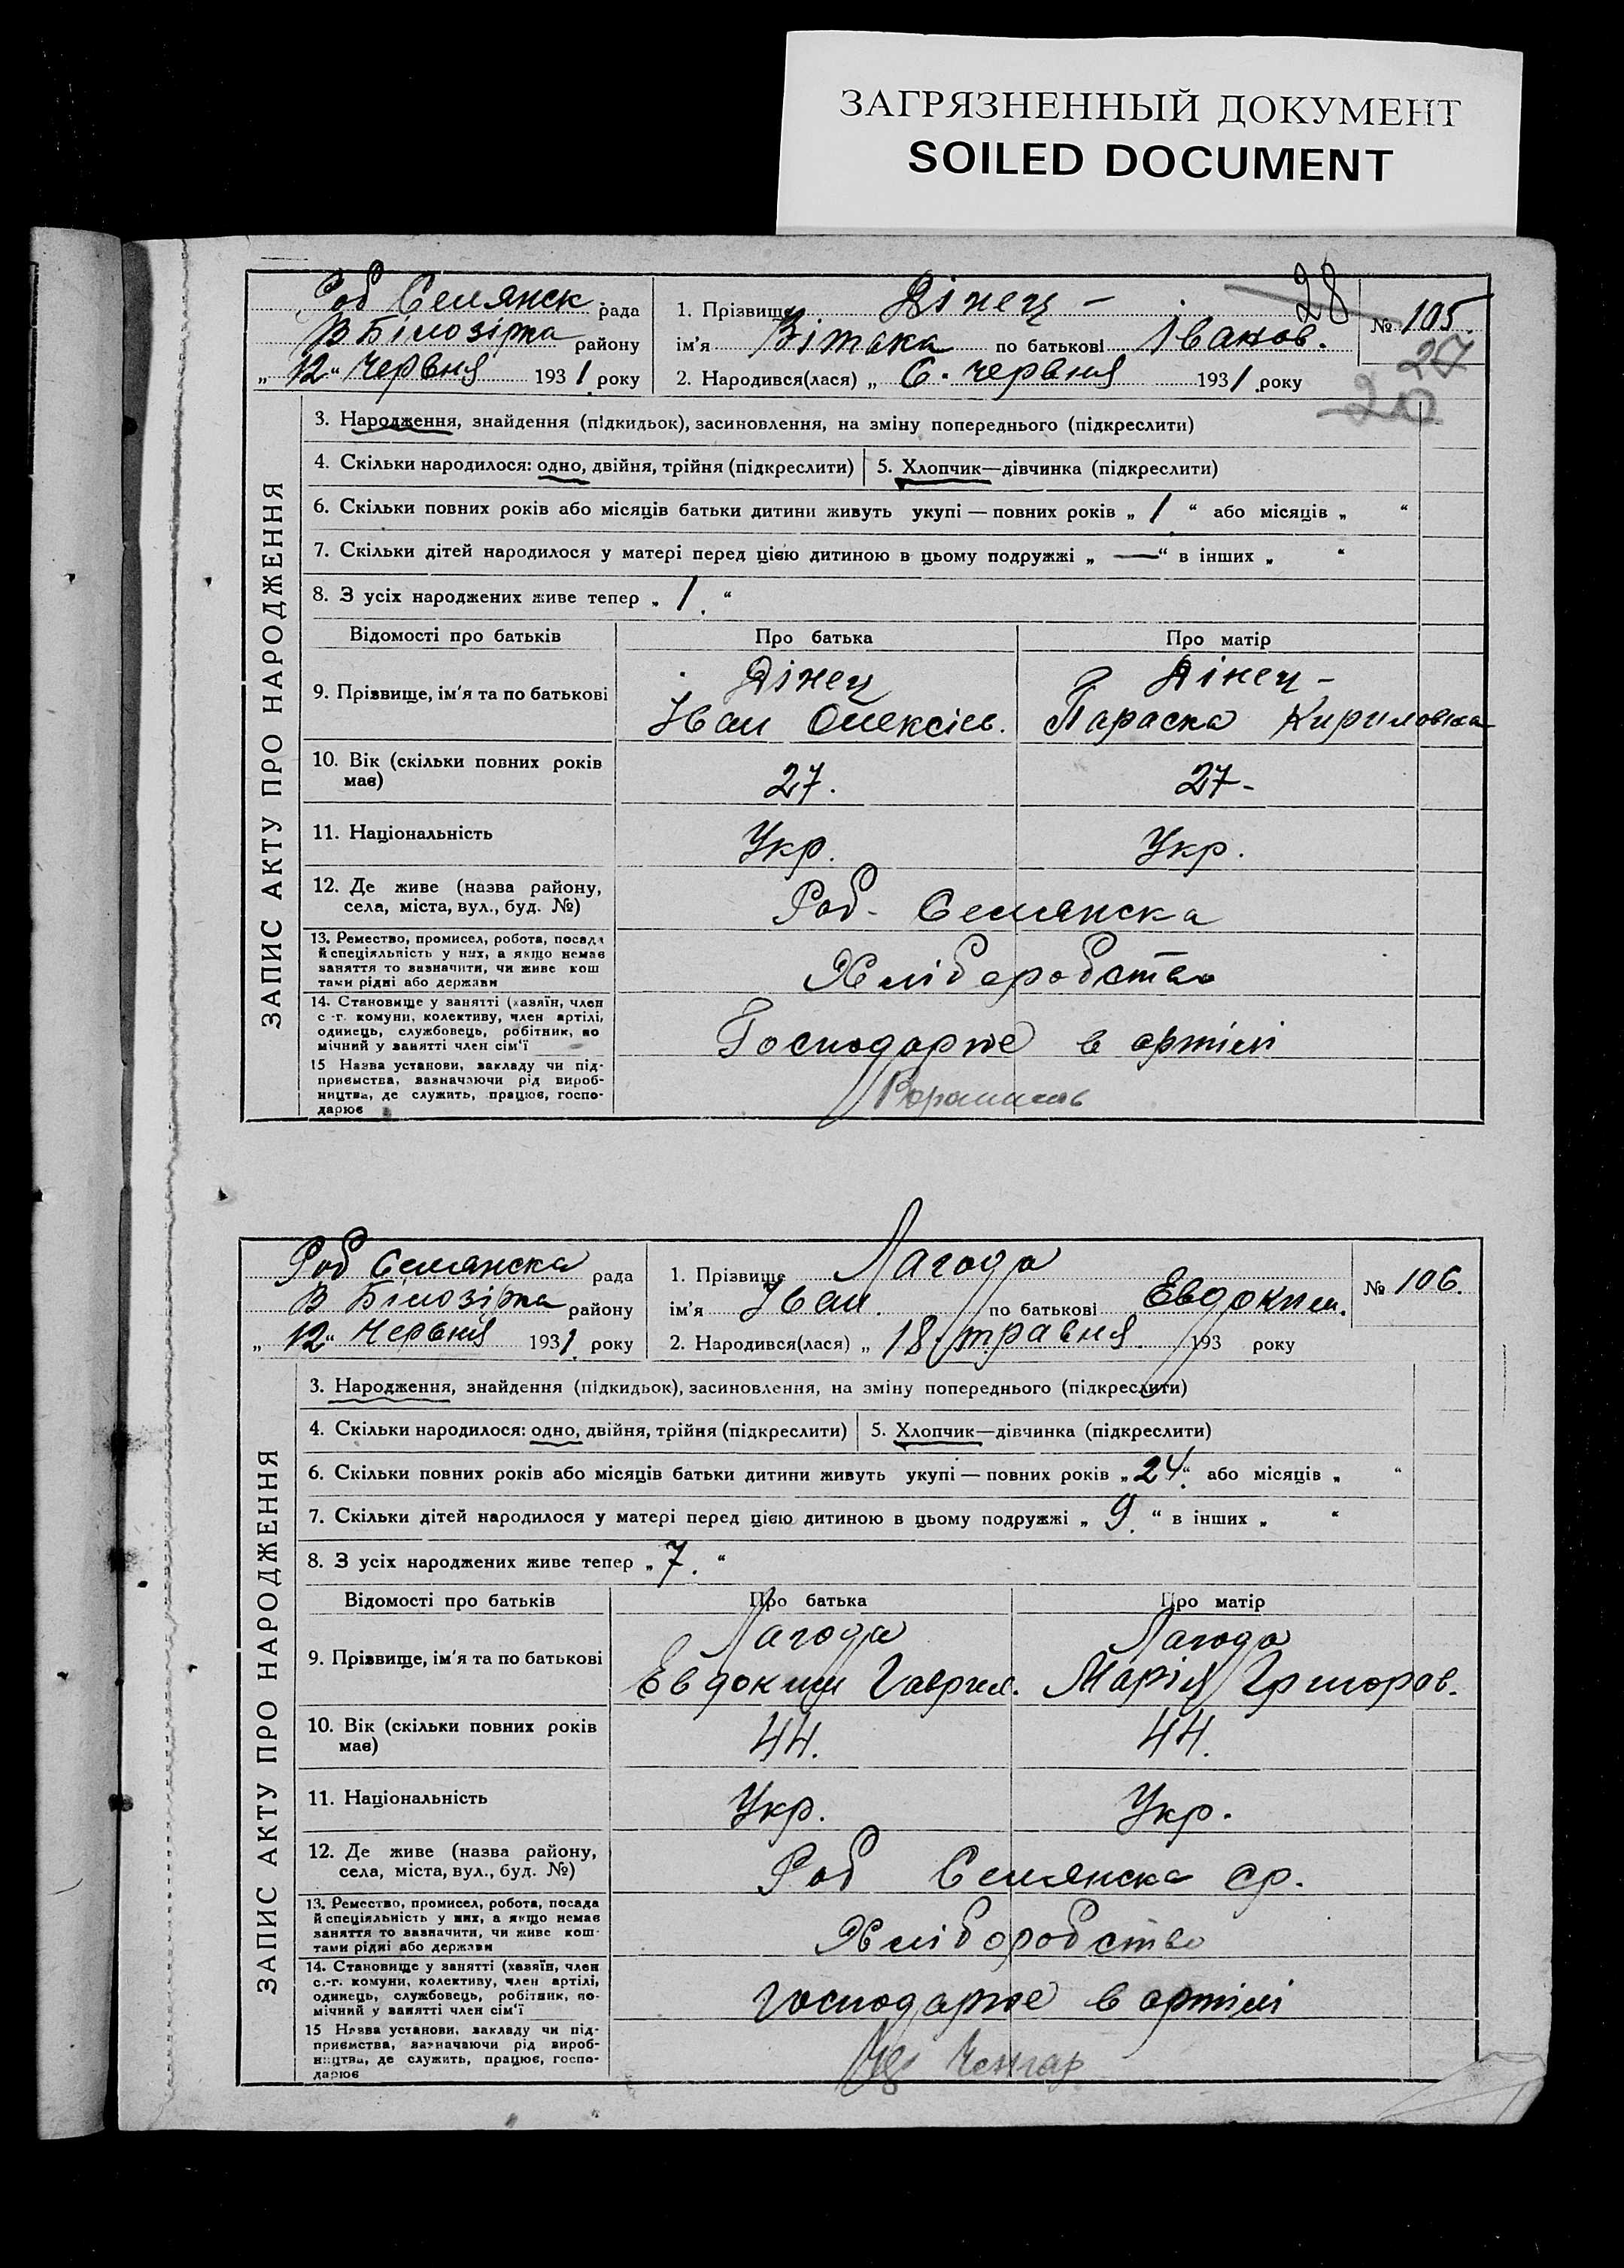 ЗАГРЯЗНЕННЫЙ ДОКУМЕНТ
SOILED DOCUMENT
ЗАПИС АКТУ ПРО НАРОДЖЕННЯ
Роб Семянск рада
В Білозірка району
„12" Червня 1931 року
1. Прізвище Дінец - 28
ім'я Вітака по батькові Іванов.
2. Народився(лася) „ 6. червня 1931 .року
№ 105.
27
20
3. Народження, знайдення (підкидьок), засиновлення, на зміну попереднього (підкреслити)
4. Скільки народилося: одно, двійня, трійня (підкреслити) 5. Хлопчик—дівчинка (підкреслити)
6. Скільки повних років або місяців батьки дитини живуть укупі — повних років „ 1 “ або місяців „ “
7. Скільки дітей народилося у матері перед цією дитиною в цьому подружжі „ — “ в інших „ “
8. З усіх народжених живе тепер „ 1. “
Відомості про батьків Про батька Про матір
9. Прізвище, ім'я та по батькові
Дінец Дінец -
Іван Олексієв. Параска Кириловна
10. Вік (скільки повних років
має) 27. 27-
11. Національність Укр. Укр.
12. Де живе (назва району,
села, міста, вул., буд. №) Роб - Семянска
13. Ремество, промисел, робота, посада
й спеціяльність у них, а якщо немає
заняття то зазначити, чи живе кош
тами рідні або держави
Хліборобство
14. Становище у занятті (хазяїн, член
с.-г. комуни, колективу, член артілі,
одинець, службовець, робітник, по
мічний у занятті член сім'ї
Господарює в артілі
15 Назва установи, закладу чи під-
приємства, зазначаючи рід вироб-
ництва, де служить, працює, госпо-
дарює
ЗАПИС АКТУ ПРО НАРОДЖЕННЯ
Роб Семянска рада
В Білозірка району
„12" Червня 1931. року
1. Прізвище Лагода
ім'я Іван. по батькові Евдоким.
2. Народився(лася) „ 18. травня 193 року
№ 106.
3. Народження, знайдення (підкидьок), засиновлення, на зміну попереднього (підкреслити)
4. Скільки народилося: одно, двійня, трійня (підкреслити) 5. Хлопчик—дівчинка (підкреслити)
6. Скільки повних років або місяців батьки дитини живуть укупі — повних років „ 24. “ або місяців „ “
7. Скільки дітей народилося у матері перед цією дитиною в цьому подружжі „ 9. “ в інших „ “
8. З усіх народжених живе тепер „ 7. “
Відомості про батьків Про батька Про матір
9. Прізвище, ім'я та по батькові
Лагода Лагода
Евдоким Гаврил. Марія Григоров.
10. Вік (скільки повних років
має) 44. 44.
11. Національність Укр. Укр.
12. Де живе (назва району,
села, міста, вул., буд. №) Роб Семянска ср.
13. Ремество, промисел, робота, посада
й спеціяльність у них, а якщо немає
заняття то зазначити, чи живе кош-
тами рідні або держави
Хліборобство
14. Становище у занятті (хазяїн, член
с.-г. комуни, колективу, член артілі,
одинець, службовець, робітник, по-
мічний у занятті член сім'ї
господарює в артілі
15 Назва установи, закладу чи під-
приємства, зазначаючи рід вироб-
ництва, де служить, працює, госпо-
дарює